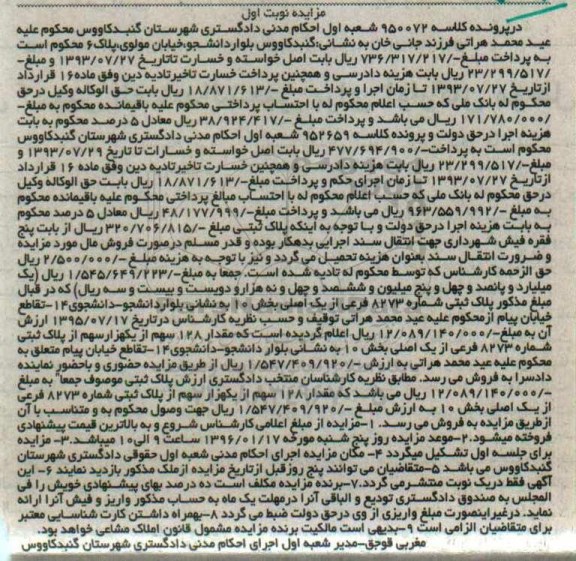 مزایده نوبت اول
درپرونده کلاسه ۹۵۰۰۷۲ شعبه اول احکام مدنی دادگستری شهرستان گنبدکاووس محکوم علیه
عید محمد هراتی فرزند جانی خان به نشانی:گنبدکاووس بلوار دانشجو،خیابان مولوی،پلاک۶ محکوم است
به پرداخت مبلغ-/۷۳۶/۳۱۷/۲۱۷ ریال بابت اصل خواسته و خسارت تاتاریخ ۱۳۹۳/۰۷/۲۷ و مبلغ-
/۲۳/۲۹۹/۵۱۷ ریال بابت هزینه دادرسی و همچنین پرداخت خسارت تاخیرتادیه دین وفق ماده۱۶ قرارداد
ازتاریخ ۱۳۹۳/۰۷/۲۷ تا زمان اجرا و پرداخت مبلغ -/۱۸/۸۷۱/۶۱۳ ریال بابت حق الوکاله وکیل درحق
محکوم له بانک ملی که حسب اعلام محکوم له با احتساب پرداختی محکوم علیه باقیمانده محکوم به مبلغ-
/۱۷۱/۷۸۰/۰۰۰ ریال می باشد و پرداخت مبلغ -/۳۸/۹۲۴/۴۱۷ ریال معادل ۵ درصد محکوم به بابت
هزینه اجرا درحق دولت و پرونده کلاسه ۹۵۲۶۵۹ شعبه اول احکام مدنی دادگستری شهرستان گنبدکاووس
محکوم است به پرداخت-/۴۷۷/۶۹۴/۹۰۰ ریال بابت اصل خواسته و خسارات تا تاریخ ۱۳۹۳/۰۷/۲۹ و
مبلغ-/۲۳/۲۹۹/۵۱۷ ریال بابت هزینه دادرسی و همچنین خسارت تاخیرتادیه دین وفق ماده ۱۶ قرارداد
ازتاریخ ۱۳۹۳/۰۷/۲۷ تا زمان اجرای حکم و پرداخت مبلغ-/۱۸/۸۷۱/۶۱۳ ریال بابت حق الوکاله وکیل
درحق محکوم له بانک ملی که حسب اعلام محکوم له با احتساب مبالغ پرداختی محکوم علیه باقیمانده محکوم
به مبلغ -/۹۶۳/۵۵۹/۹۹۲ ریال می باشد و پرداخت مبلغ-/۴۸/۱۷۷/۹۹۹ ریال معادل ۵ درصد محکوم
به بابت هزینه اجرا درحق دولت و با توجه به اینکه پلاک ثبتی مبلغ -/۳۲۰/۷۰۶/۸۱۵ ریال از بابت پنج
فقره فیش شهرداری جهت انتقال سند اجرایی بدهکار بوده و قدر مسلم درصورت فروش مال مورد مزایده
و ضرورت انتقال سند بعنوان هزینه تحمیل می گردد و نیز با توجه به هزینه مبلغ-/۲/۵۰۰/۰۰۰ ریال
حق الزحمه کارشناس که توسط محکوم له تادیه شده است. جمعا به مبلغ-/۱/۵۴۵/۶۴۹/۲۲۳ ریال (یک
میلیارد و پانصد و چهل و پنج میلیون و ششصد و چهل و نه هزارو دویست و بیست و سه ریال) که در قبال
مبلغ مذکور پلاک ثبتی شماره ۸۲۷۳ فرعی از یک اصلی بخش ۱۰ به نشانی بلواردانشجو-دانشجوی۱۴-تقاطع
خیابان پیام ازمحکوم علیه عید محمد هراتی توقیف و حسب نظریه کارشناس درتاریخ ۱۳۹۵/۰۷/۱۷ ارزش
آن به مبلغ-/۱۲/۰۸۹/۱۴۰/۰۰۰ ریال اعلام گردیده است که مقدار ۱۲۸ سهم از یکهزارسهم از پلاک ثبتی
شماره ۸۲۷۳ فرعی از یک اصلی بخش ۱۰ به نشانی بلوار دانشجو-دانشجوی۱۴-تقاطع خیابان پیام متعلق به
محکوم علیه عید محمد هراتی به ارزش -/۱/۵۴۷/۴۰۹/۹۲۰ ریال از طریق مزایده حضوری و باحضور نماینده
دادسرا به فروش می رسد. مطابق نظریه کارشناسان منتخب دادگستری ارزش پلاک ثبتی موصوف جمعا" به مبلغ
-/۱۲/۰۸۹/۱۴۰/۰۰۰ ریال می باشد که مقدار ۱۲۸ سهم از یکهزار سهم از پلاک ثبتی شماره ۸۲۷۳ فرعی
از یک اصلی بخش ۱۰ به ارزش مبلغ -/۱/۵۴۷/۴۰۹/۹۲۰ ریال جهت وصول محکوم به و متناسب با آن
ازطریق مزایده به فروش می رسد. ۱-مزایده از مبلغ اعلامی کارشناس شروع و به بالاترین قیمت پیشنهادی
فروخته میشود.۲-موعد مزایده روز پنج شنبه مورخه ۱۳۹۶/۰۱/۱۷ ساعت ۹ الی۱۰ میباشد.۳- مزایده
برای جلسه اول تشکیل میگردد ۴- مکان مزایده اجرای احکام مدنی شعبه اول حقوقی دادگستری شهرستان
گنبدکاووس می باشد ۵-متقاضیان می توانند پنج روزقبل ازتاریخ مزایده ازملک مذکور بازدید نمایند ۶- این
آگهی فقط دریک نوبت منتشرمی گردد.۷-برنده مزایده مکلف است ده درصد بهای پیشنهادی خویش را فی
المجلس به صندوق دادگستری تودیع و الباقی آنرا درمهلت یک ماه به حساب مذکور واریز و فیش آنرا ارائه
نماید. درغیراینصورت مبلغ واریزی از وی درحق دولت ضبط می گردد ۸-بهمراه داشتن کارت شناسایی معتبر
برای متقاضیان الزامی است ۹-بدیهی است مالکیت برنده مزایده مشمول قانون املاک مشاعی خواهد بود.
مغربی قوجق-مدیر شعبه اول اجرای احکام مدنی دادگستری شهرستان گنبدکاووس